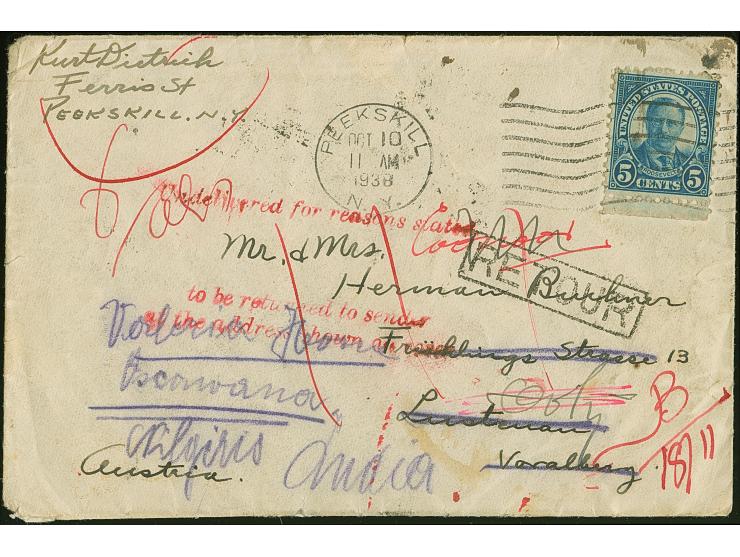 Kurt Dietrich
Ferris St
PEEKSKILL. N.Y.
PEEKSKILL
OCT 10
11 AM
1938
N.Y.
UNITED STATES POSTAGE
ROOSEVELT
5 CENTS 5
Undelivered for reasons stated
to be returned to sender
at the address shown on
RETOUR
Mr. & Mrs.
Herman
Strasse 13
Lustenau
Voralberg.
Austria.
Nilgiris
India
B
18/11